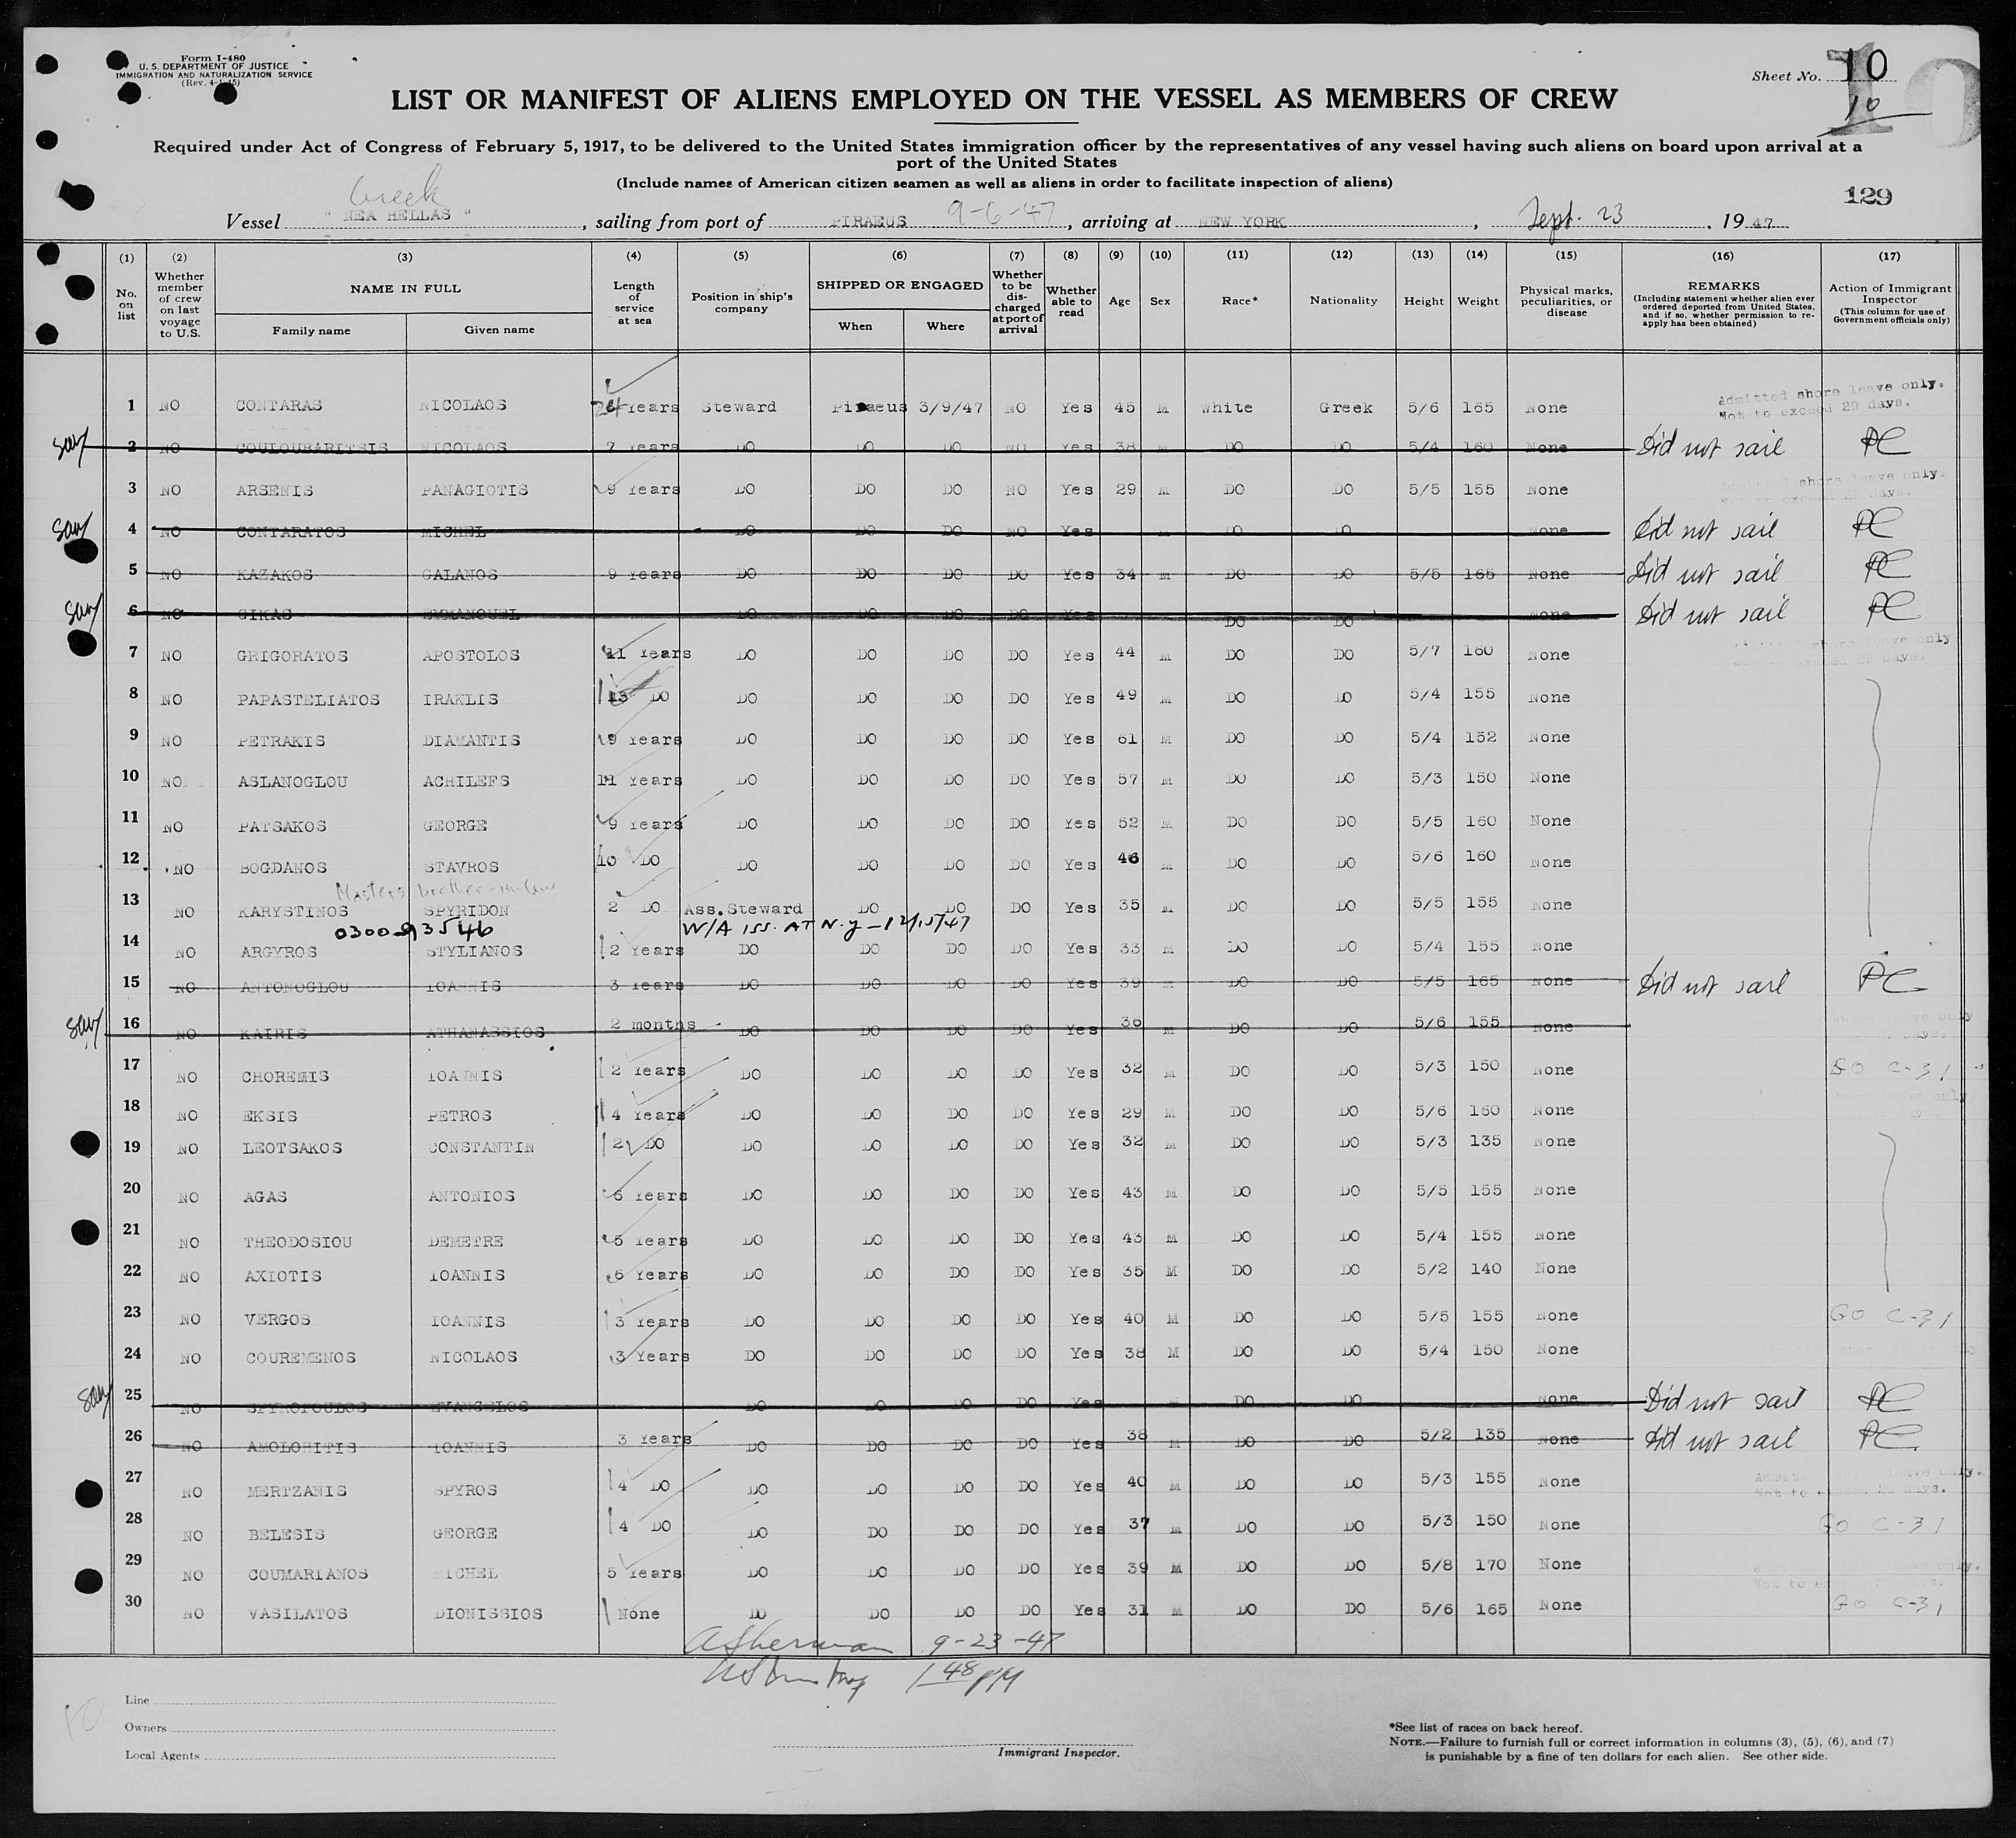 Form I-480
U. S. DEPARTMENT OF JUSTICE
IMMIGRATION AND NATURALIZATION SERVICE
(Rev. 4-1-45)
Sheet No. 10
10
10
LIST OR MANIFEST OF ALIENS EMPLOYED ON THE VESSEL AS MEMBERS OF CREW
Required under Act of Congress of February 5, 1917, to be delivered to the United States immigration officer by the representatives of any vessel having such aliens on board upon arrival at a
port of the United States
(Include names of American citizen seamen as well as aliens in order to facilitate inspection of aliens)
129
Greek
Vessel " NEA HELLAS ", sailing from port of PIRAEUS 9-6-47, arriving at NEW YORK, Sept. 23, 1947
(1) (2) (3) (4) (5) (6) (7) (8) (9) (10) (11) (12) (13) (14) (15) (16) (17)
No. on list
Whether member of crew on last voyage to U.S.
NAME IN FULL
Family name Given name
Length of service at sea
Position in ship's company
SHIPPED OR ENGAGED
When Where
Whether to be discharged at port of arrival
Whether able to read
Age Sex Race* Nationality Height Weight
Physical marks, peculiarities, or disease
REMARKS
(Including statement whether alien ever ordered deported from United States, and if so, whether permission to reapply has been obtained)
Action of Immigrant Inspector
(This column for use of Government officials only)
1 NO CONTARAS NICOLAOS 24 Years Steward Piraeus 3/9/47 NO Yes 45 M White Greek 5/6 165 None Admitted shore leave only. Not to exceed 29 days.
2 NO COULOUBARITSIS NICOLAOS 7 Years DO DO DO NO Yes 38 M DO DO 5/4 160 None Did not sail
3 NO ARSENIS PANAGIOTIS 9 Years DO DO DO NO Yes 29 M DO DO 5/5 155 None Admitted shore leave only. Not to exceed 29 days.
4 NO CONTARATOS MICHEL DO DO DO NO Yes M DO DO None Did not sail
5 NO KAZAKOS GALANOS 9 Years DO DO DO DO Yes 34 M DO DO 5/5 165 None Did not sail
6 NO GIKAS EMMANOUEL DO DO DO DO Yes DO DO None Did not sail
7 NO GRIGORATOS APOSTOLOS 11 Years DO DO DO DO Yes 44 M DO DO 5/7 160 None
8 NO PAPASTELIATOS IRAKLIS 13 DO DO DO DO DO Yes 49 M DO DO 5/4 155 None
9 NO PETRAKIS DIAMANTIS 9 Years DO DO DO DO Yes 61 M DO DO 5/4 152 None
10 NO ASLANOGLOU ACHILEFS 11 Years DO DO DO DO Yes 57 M DO DO 5/3 150 None
11 NO PATSAKOS GEORGE 9 Years DO DO DO DO Yes 52 M DO DO 5/5 160 None
12 NO BOGDANOS STAVROS 10 DO DO DO DO DO Yes 46 M DO DO 5/6 160 None
Masters brother-in-law
13 NO KARYSTINOS SPYRIDON 2 DO Ass. Steward DO DO DO Yes 35 M DO DO 5/5 155 None
0300-93546 W/A ISS. AT N.Y - 12/15/47
14 NO ARGYROS STYLIANOS 2 Years DO DO DO DO Yes 33 M DO DO 5/4 155 None
15 NO ANTONOGLOU IOANNIS 3 Years DO DO DO DO Yes 39 M DO DO 5/5 165 None Did not sail
16 NO KAIRIS ATHANASSIOS 2 months DO DO DO DO Yes 36 M DO DO 5/6 155 None
17 NO CHOREMIS IOANNIS 2 Years DO DO DO DO Yes 32 M DO DO 5/3 150 None GO C-31
18 NO EKSIS PETROS 4 Years DO DO DO DO Yes 29 M DO DO 5/6 160 None
19 NO LEOTSAKOS CONSTANTIN 2 DO DO DO DO DO Yes 32 M DO DO 5/3 135 None
20 NO AGAS ANTONIOS 6 Years DO DO DO DO Yes 43 M DO DO 5/5 155 None
21 NO THEODOSIOU DEMETRE 5 Years DO DO DO DO Yes 43 M DO DO 5/4 155 None
22 NO AXIOTIS IOANNIS 6 Years DO DO DO DO Yes 35 M DO DO 5/2 140 None
23 NO VERGOS IOANNIS 3 Years DO DO DO DO Yes 40 M DO DO 5/5 155 None GO C-31
24 NO COUREMENOS NICOLAOS 3 Years DO DO DO DO Yes 38 M DO DO 5/4 150 None
25 NO SPYROPOULOS EVANGELOS DO DO DO DO Yes DO DO None Did not sail
26 NO AMOLOHITIS IOANNIS 3 Years DO DO DO DO Yes 38 M DO DO 5/2 135 None Did not sail
27 NO MERTZANIS SPYROS 4 DO DO DO DO DO Yes 40 M DO DO 5/3 155 None Admitted shore leave only. Not to exceed 29 days.
28 NO BELESIS GEORGE 4 DO DO DO DO DO Yes 37 M DO DO 5/3 150 None GO C-31
29 NO COUMARIANOS MICHEL 5 Years DO DO DO DO Yes 39 M DO DO 5/8 170 None
30 NO VASILATOS DIONISSIOS None DO DO DO DO Yes 31 M DO DO 5/6 165 None GO C-31
ASherman 9-23-47
1 48 PM
Line
Owners
Local Agents
Immigrant Inspector.
*See list of races on back hereof.
NOTE.—Failure to furnish full or correct information in columns (3), (5), (6), and (7)
is punishable by a fine of ten dollars for each alien. See other side.